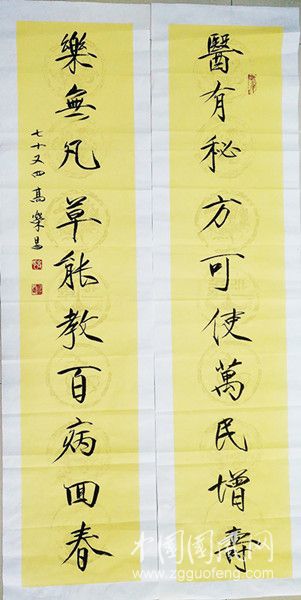 醫有秘方可使萬民增壽
樂無凡草能教百病回春
七十又四高樂昌
中国国风网
www.zgguofeng.com